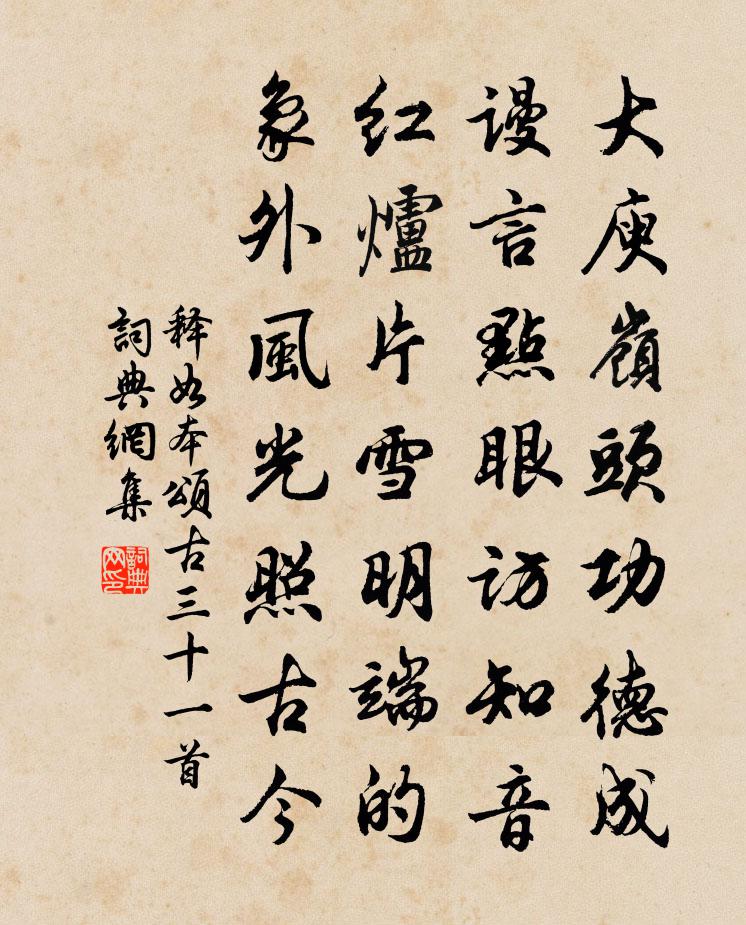 大庾嶺頭功德成
謾言點眼訪知音
紅爐片雪明端的
象外風光照古今
釋如本頌古三十一首
詞典網集
詞典網印